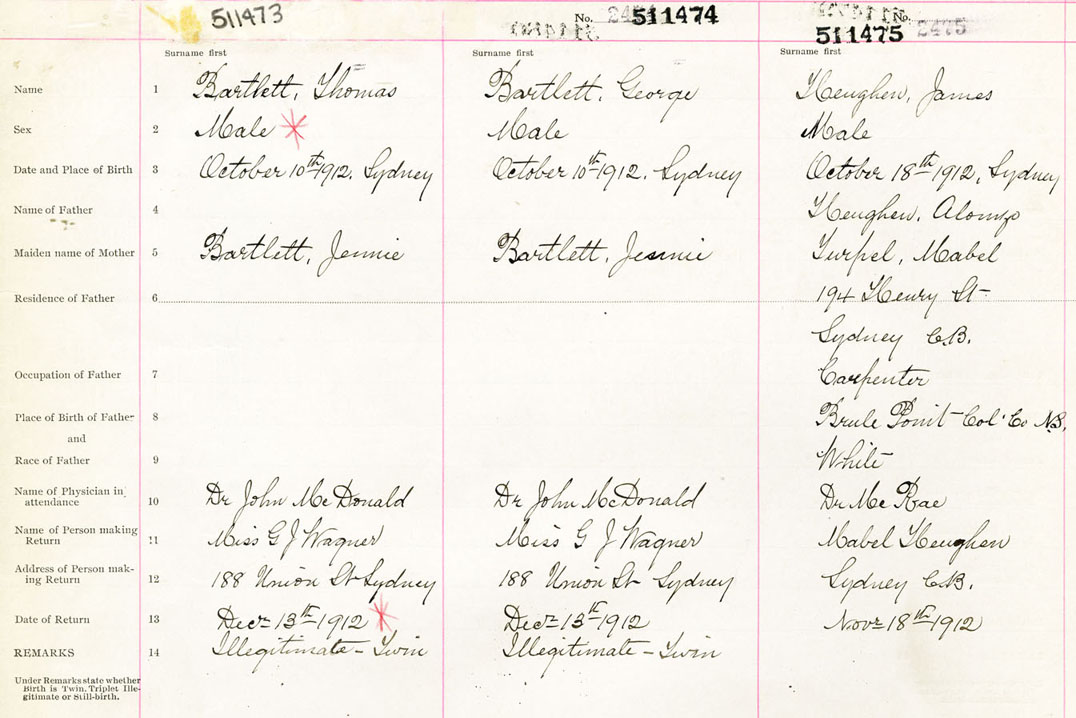 511473
No. 511474
No. 2475
511475
Surname first
Surname first
Surname first
Name 1 Bartlett, Thomas Bartlett, George Heughen, James
Sex 2 Male Male Male
Date and Place of Birth 3 October 10th 1912, Sydney October 10th 1912, Sydney October 18th 1912, Sydney
Name of Father 4 Heughen, Alonzo
Maiden name of Mother 5 Bartlett, Jennie Bartlett, Jennie Turpel, Mabel
Residence of Father 6 194 Henry St
Sydney C.B.
Occupation of Father 7 Carpenter
Place of Birth of Father 8 Brule Point Col. Co N.S.
and
Race of Father 9 White
Name of Physician in
attendance 10 Dr John McDonald Dr John McDonald Dr McRae
Name of Person making
Return 11 Miss G J Wagner Miss G J Wagner Mabel Heughen
Address of Person mak-
ing Return 12 188 Union St Sydney 188 Union St Sydney Sydney C.B.
Date of Return 13 Dec 13th 1912 Dec 13th 1912 Nov 18th 1912
REMARKS 14 Illegitimate - Twin Illegitimate - Twin
Under Remarks state whether
Birth is Twin, Triplet Ille-
gitimate or Still-birth.